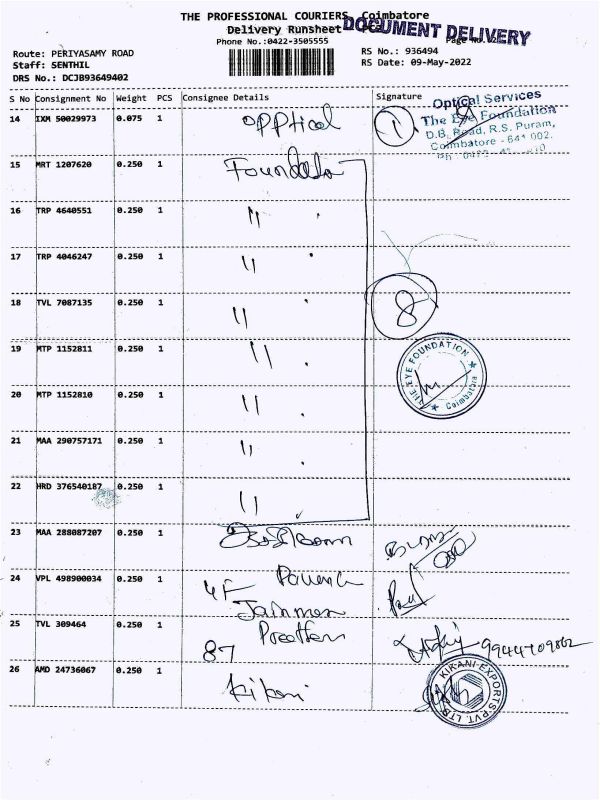 THE PROFESSIONAL COURIERS, Coimbatore
Delivery Runsheet
DOCUMENT DELIVERY
Phone No.:0422-3505555
Page No.
Route: PERIYASAMY ROAD
RS No.: 936494
Staff: SENTHIL
RS Date: 09-May-2022
DRS No.: DCJB93649402
S No Consignment No Weight PCS Consignee Details Signature
Optical Services
The Eye Foundation
D.B. Road, R.S. Puram,
Coimbatore - 641 002.
14 IXM 50029973 0.075 1 Opptical 1
15 MRT 1207620 0.250 1 Foundation
16 TRP 4640551 0.250 1 "
17 TRP 4046247 0.250 1 "
18 TVL 7087135 0.250 1 " 8
19 MTP 1152811 0.250 1 "
THE EYE FOUNDATION
Coimbatore
20 MTP 1152810 0.250 1 "
21 MAA 290757171 0.250 1 "
22 HRD 376540187 0.250 1 "
23 MAA 288087207 0.250 1
24 VPL 498900034 0.250 1 4F
25 TVL 309464 0.250 1 Preethi
87
26 AMD 24736067 0.250 1 Kikani
KIKANI EXPORTS PVT. LTD.